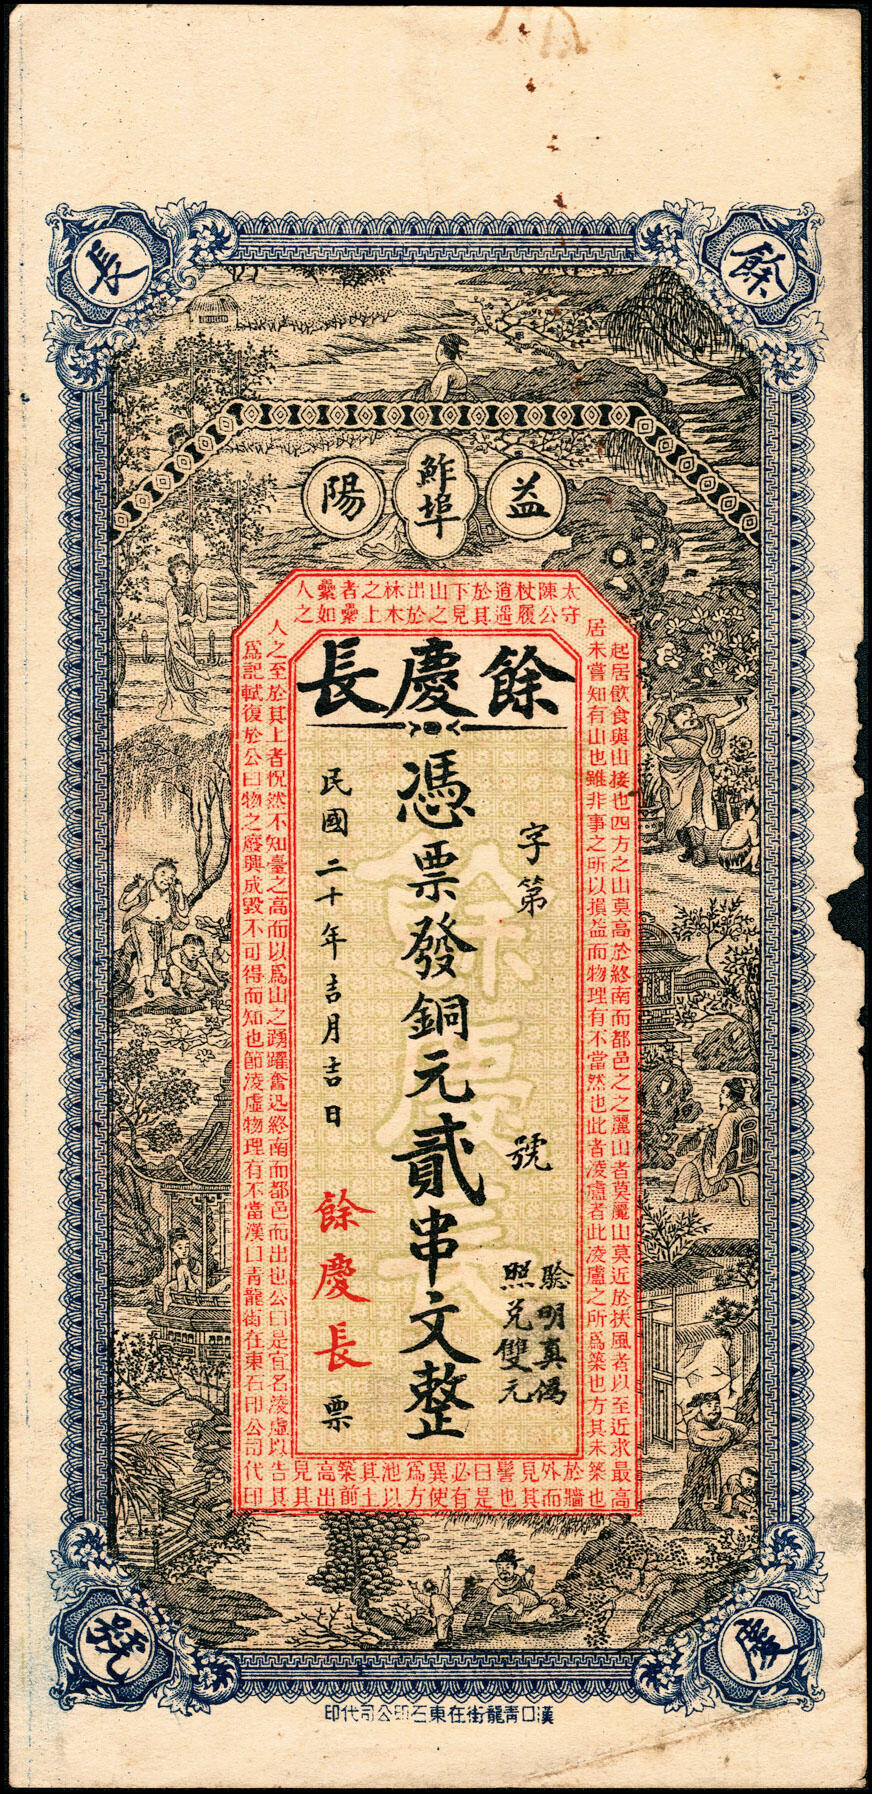 餘慶長號
益陽
鮓埠
太守陳公杖履逍遥於其下見山之出於林木之上者纍纍如人之
起居飲食與山接也四方之山莫高於終南而都邑之之麗山者莫麗山莫近於扶風者以至近求最高
居未嘗知有山也雖非事之所以損益而物理有不當然也此者凌虛者此凌虛之所為築也方其未築也
於牆外而見其髻也曰是必有異使為方池以其土築前高出見其
人之至於其上者怳然不知臺之高而以為山之踴躍奮迅終南而都邑而出也公曰是宜名凌虛以告其
為記軾復於公曰物之廢興成毀不可得而知也節凌虛物理有不當漢口青龍街在東石印公司代印
餘慶長
字第 號
驗明真偽
照兌雙元
憑票發銅元貳串文整
餘慶長
民國二十年吉月吉日
餘慶長票
漢口青龍街在東石印公司代印